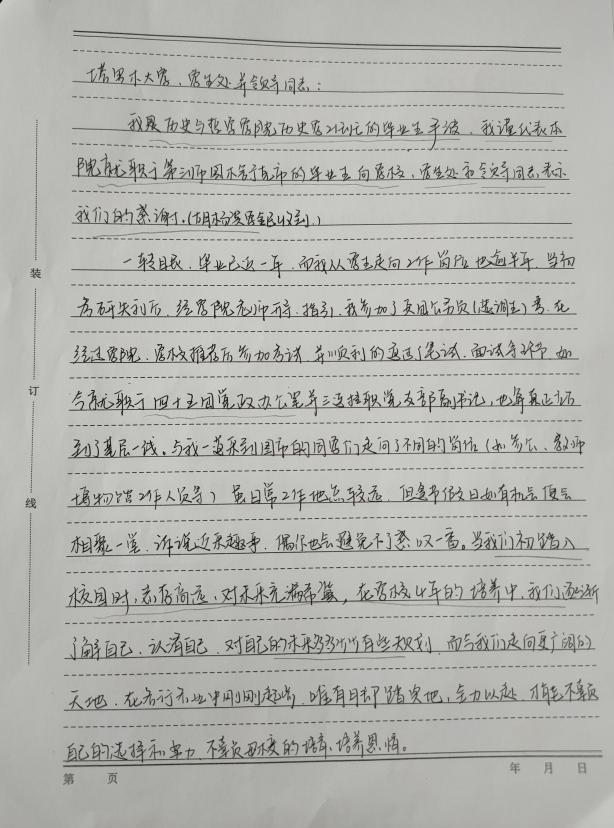 塔里木大学、学生处并领导同志:
我是历史与哲学学院历史学21-1的毕业生于波,我谨代表本
院就职于第三师图木舒克市的毕业生向学校、学生处和领导同志表示
我们的感谢。(胡杨奖学金已收到)
一转眼,毕业已近一年,而我从学生走向工作岗位也逾半年,当初
考研失利后,经学院老师开导、指引,我参加了兵团公务员(选调生)考,在
经过学院、学校推荐后参加考试,并顺利的通过了笔试、面试等环节,如
今就职于四十五团党政办公室并三连挂职党支部副书记,也算真正下
到了基层一线。与我一道来到图市的同学们走向了不同的岗位(如参公、教师
博物馆工作人员等)虽日常工作地点较远,但是节假日如有机会便会
相聚一堂,诉说近来趣事,偶尔也会避免不了感叹一番。当我们初踏入
校园时,志存高远,对未来充满希冀,在学校4年的培养中,我们逐渐
了解自己、认清自己,对自己的未来多多少少有些规划,而今我们走向更广阔的
天地,在各行各业中刚刚起步,唯有脚踏实地,全力以赴,才能不辜负
自己的选择和努力,不辜负母校的培育、培养恩情。
装
订
线
第 页
年 月 日